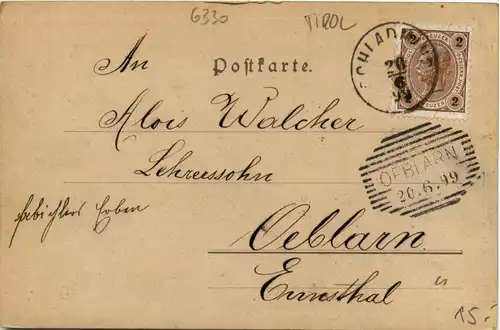 6330
TIROL
2 2
KREUZER
SCHLADMING
20
6
99
2 2
Postkarte.
An
Alois Walcher
Lehrerssohn
Oeblarn
Ennsthal
OEBLARN
20.6.99
Erben
15.-